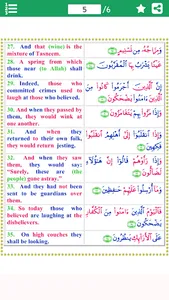 5 /6
27. And that (wine) is the
mixture of Tasneem.
وَمِزَاجُهُ مِن تَسْنِيمٍ
28. A spring from which
those near (to Allah) shall
drink.
عَيْنًا يَشْرَبُ بِهَا الْمُقَرَّبُونَ
29. Indeed, those who
committed crimes used to
laugh at those who believed.
إِنَّ الَّذِينَ أَجْرَمُوا كَانُوا مِنَ
الَّذِينَ ءَامَنُوا يَضْحَكُونَ
30. And when they passed by
them, they would wink at
one another.
وَإِذَا مَرُّوا بِهِمْ يَتَغَامَزُونَ
31. And when they
returned to their own folk,
they would return jesting.
وَإِذَا انقَلَبُوا إِلَىٰ أَهْلِهِمُ انقَلَبُوا
فَكِهِينَ
32. And when they saw
them, they would say:
“Surely, these are (the
people) gone astray.”
وَإِذَا رَأَوْهُمْ قَالُوا إِنَّ هَٰؤُلَاءِ
لَضَالُّونَ
33. And they had not been
sent to be guardians over
them.
وَمَا أُرْسِلُوا عَلَيْهِمْ حَافِظِينَ
34. So today those who
believed are laughing at the
disbelievers.
فَالْيَوْمَ الَّذِينَ ءَامَنُوا مِنَ الْكُفَّارِ
يَضْحَكُونَ
35. On high couches they
shall be looking.
عَلَى الْأَرَائِكِ يَنظُرُونَ